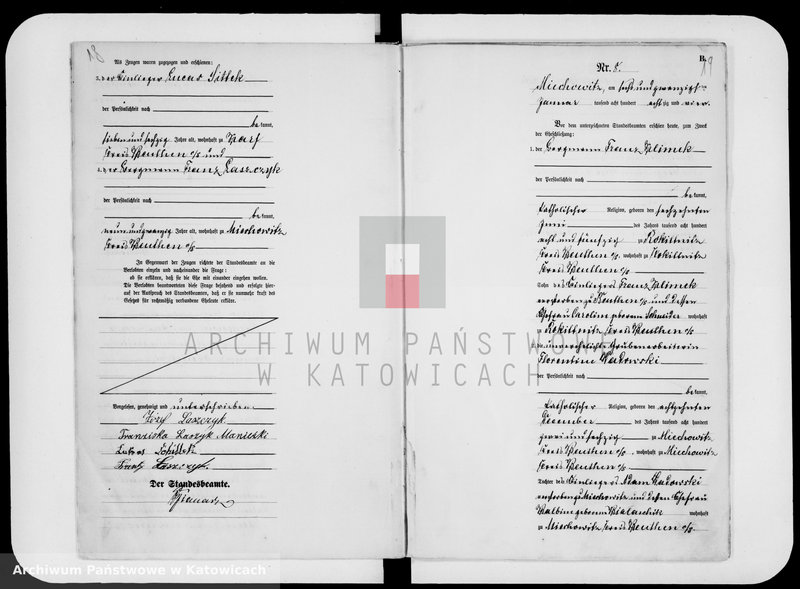 18
Als Zeugen waren zugezogen und erschienen:
3. der Einlieger Lucas Sittek
der Persönlichkeit nach
be kannt,
sieben und sechzig Jahre alt, wohnhaft zu Karf
Kreis Beuthen o/s und
4. der Bergmann Franz Laszczyk
der Persönlichkeit nach
be kannt,
neun und zwanzig Jahre alt, wohnhaft zu Miechowitz
Kreis Beuthen o/s
In Gegenwart der Zeugen richtete der Standesbeamte an die
Verlobten einzeln und nacheinander die Frage:
ob sie erklären, daß sie die Ehe mit einander eingehen wollen.
Die Verlobten beantworteten diese Frage bejahend und erfolgte hier-
auf der Ausspruch des Standesbeamten, daß er sie nunmehr kraft des
Gesetzes für rechtmäßig verbundene Eheleute erkläre.
Vorgelesen, genehmigt und unterschrieben
Józef Laszczyk
Franziska Laszyk
Lukas
Franz Laszczyk
Der Standesbeamte.
B.
19
Nr. 8.
Miechowitz, am sechs und zwanzigsten
Januar tausend acht hundert achtzig und vier.
Vor dem unterzeichneten Standesbeamten erschienen heute, zum Zweck
der Eheschließung:
1. der Bergmann Franz Klimek
der Persönlichkeit nach
be kannt,
katholischer Religion, geboren den sechzehnten
Juni des Jahres tausend acht hundert
acht und fünfzig zu Rokittnitz
Kreis Beuthen o/s, wohnhaft zu Rokittnitz
Kreis Beuthen o/s
Sohn des Einliegers Franz Klimek
verstorben zu Beuthen o/s und dessen
Ehefrau Caroline geborene Schneider wohnhaft
zu Rokittnitz Kreis Beuthen o/s
2. die unverehelichte Grubenarbeiterin
Florentine Kadowski
der Persönlichkeit nach
be kannt,
katholischer Religion, geboren den achtzehnten
Dezember des Jahres tausend acht hundert
zwei und sechzig zu Miechowitz
Kreis Beuthen o/s, wohnhaft zu Miechowitz
Kreis Beuthen o/s
Tochter des Einliegers Adam Kadowski
verstorben Miechowitz und dessen Ehefrau
geborene wohnhaft
zu Miechowitz Kreis Beuthen o/s.
ARCHIWUM PAŃSTWOWE
W KATOWICACH
Archiwum Państwowe w Katowicach